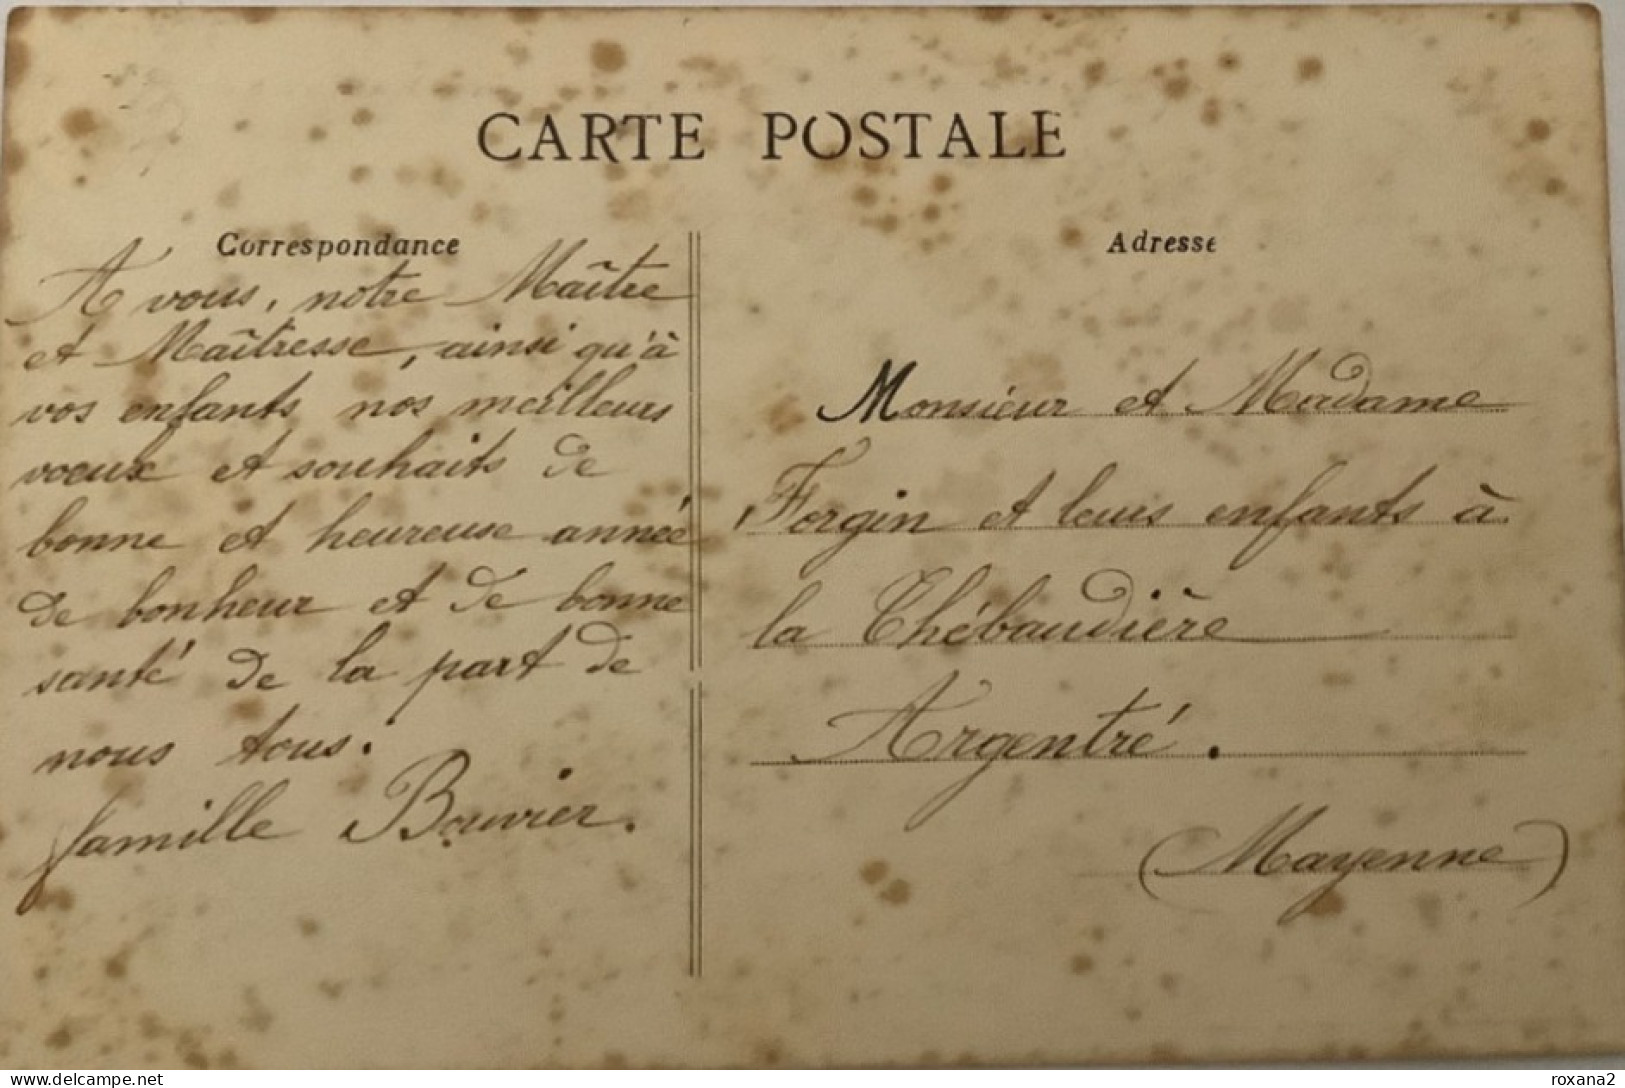 CARTE POSTALE
Correspondance
A vous, notre Maître
et Maîtresse, ainsi qu'à
vos enfants nos meilleurs
voeux et souhaits de
bonne et heureuse année
de bonheur et de bonne
santé de la part de
nous tous.
famille Bouvier.
Adresse
Monsieur et Madame
Forgin et leurs enfants à
la Thébaudière
Argentré.
(Mayenne)
delcampe.net
roxana2